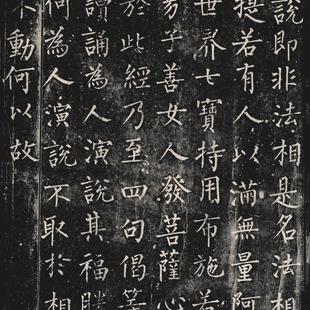 說即非法相是名法相
提若有人以滿無量阿
世界七寶持用布施若
男子善女人發菩薩心
於此經乃至四句偈等
讀誦為人演說其福勝
何為人演說不取於相
不動何以故